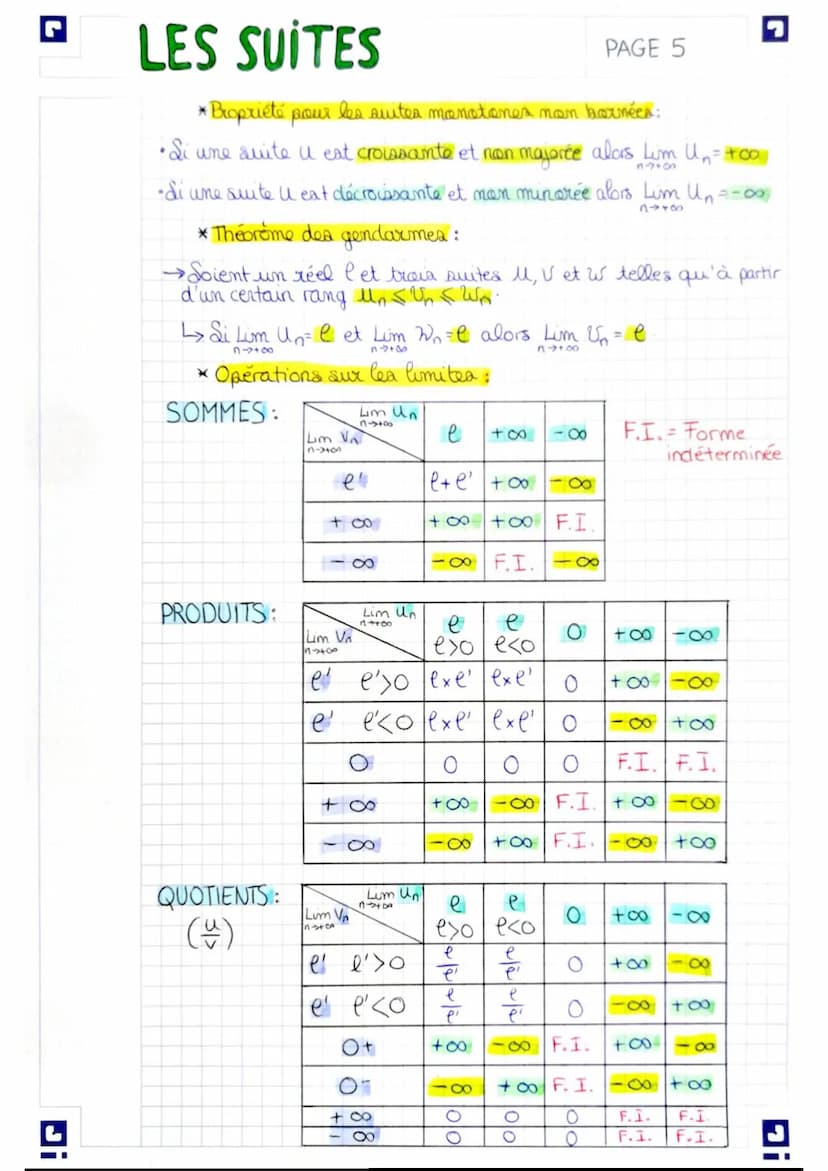 LES SUITES
PAGE 5
* Propriété pour les suites monotones non bornées :
• Si une suite u est croissante et non majorée alors Lim Un = +∞
n→+∞
• Si une suite u est décroissante et non minorée alors Lim Un = -∞
n→+∞
* Théorème des gendarmes :
→ Soient un réel l et trois suites U, V et W telles qu'à partir
d'un certain rang Un ≤ Vn ≤ Wn.
↳ Si Lim Un = l et Lim Wn = l alors Lim Vn = l
n→+∞ n→+∞ n→+∞
* Opérations sur les limites :
SOMMES :
Lim Un n→+∞ / Lim Vn n→+∞ | l | +∞ | -∞
l' | l+l' | +∞ | -∞
+∞ | +∞ | +∞ | F.I.
-∞ | -∞ | F.I. | -∞
F.I. = Forme
indéterminée
PRODUITS :
Lim Un n→+∞ / Lim Vn n→+∞ | l l>0 | l l<0 | 0 | +∞ | -∞
l' l'>0 | l×l' | l×l' | 0 | +∞ | -∞
l' l'<0 | l×l' | l×l' | 0 | -∞ | +∞
0 | 0 | 0 | 0 | F.I. | F.I.
+∞ | +∞ | -∞ | F.I. | +∞ | -∞
-∞ | -∞ | +∞ | F.I. | -∞ | +∞
QUOTIENTS :
(u/v)
Lim Un n→+∞ / Lim Vn n→+∞ | l l>0 | l l<0 | 0 | +∞ | -∞
l' l'>0 | l/l' | l/l' | 0 | +∞ | -∞
l' l'<0 | l/l' | l/l' | 0 | -∞ | +∞
0+ | +∞ | -∞ | F.I. | +∞ | -∞
0- | -∞ | +∞ | F.I. | -∞ | +∞
+∞ | 0 | 0 | 0 | F.I. | F.I.
-∞ | 0 | 0 | 0 | F.I. | F.I.